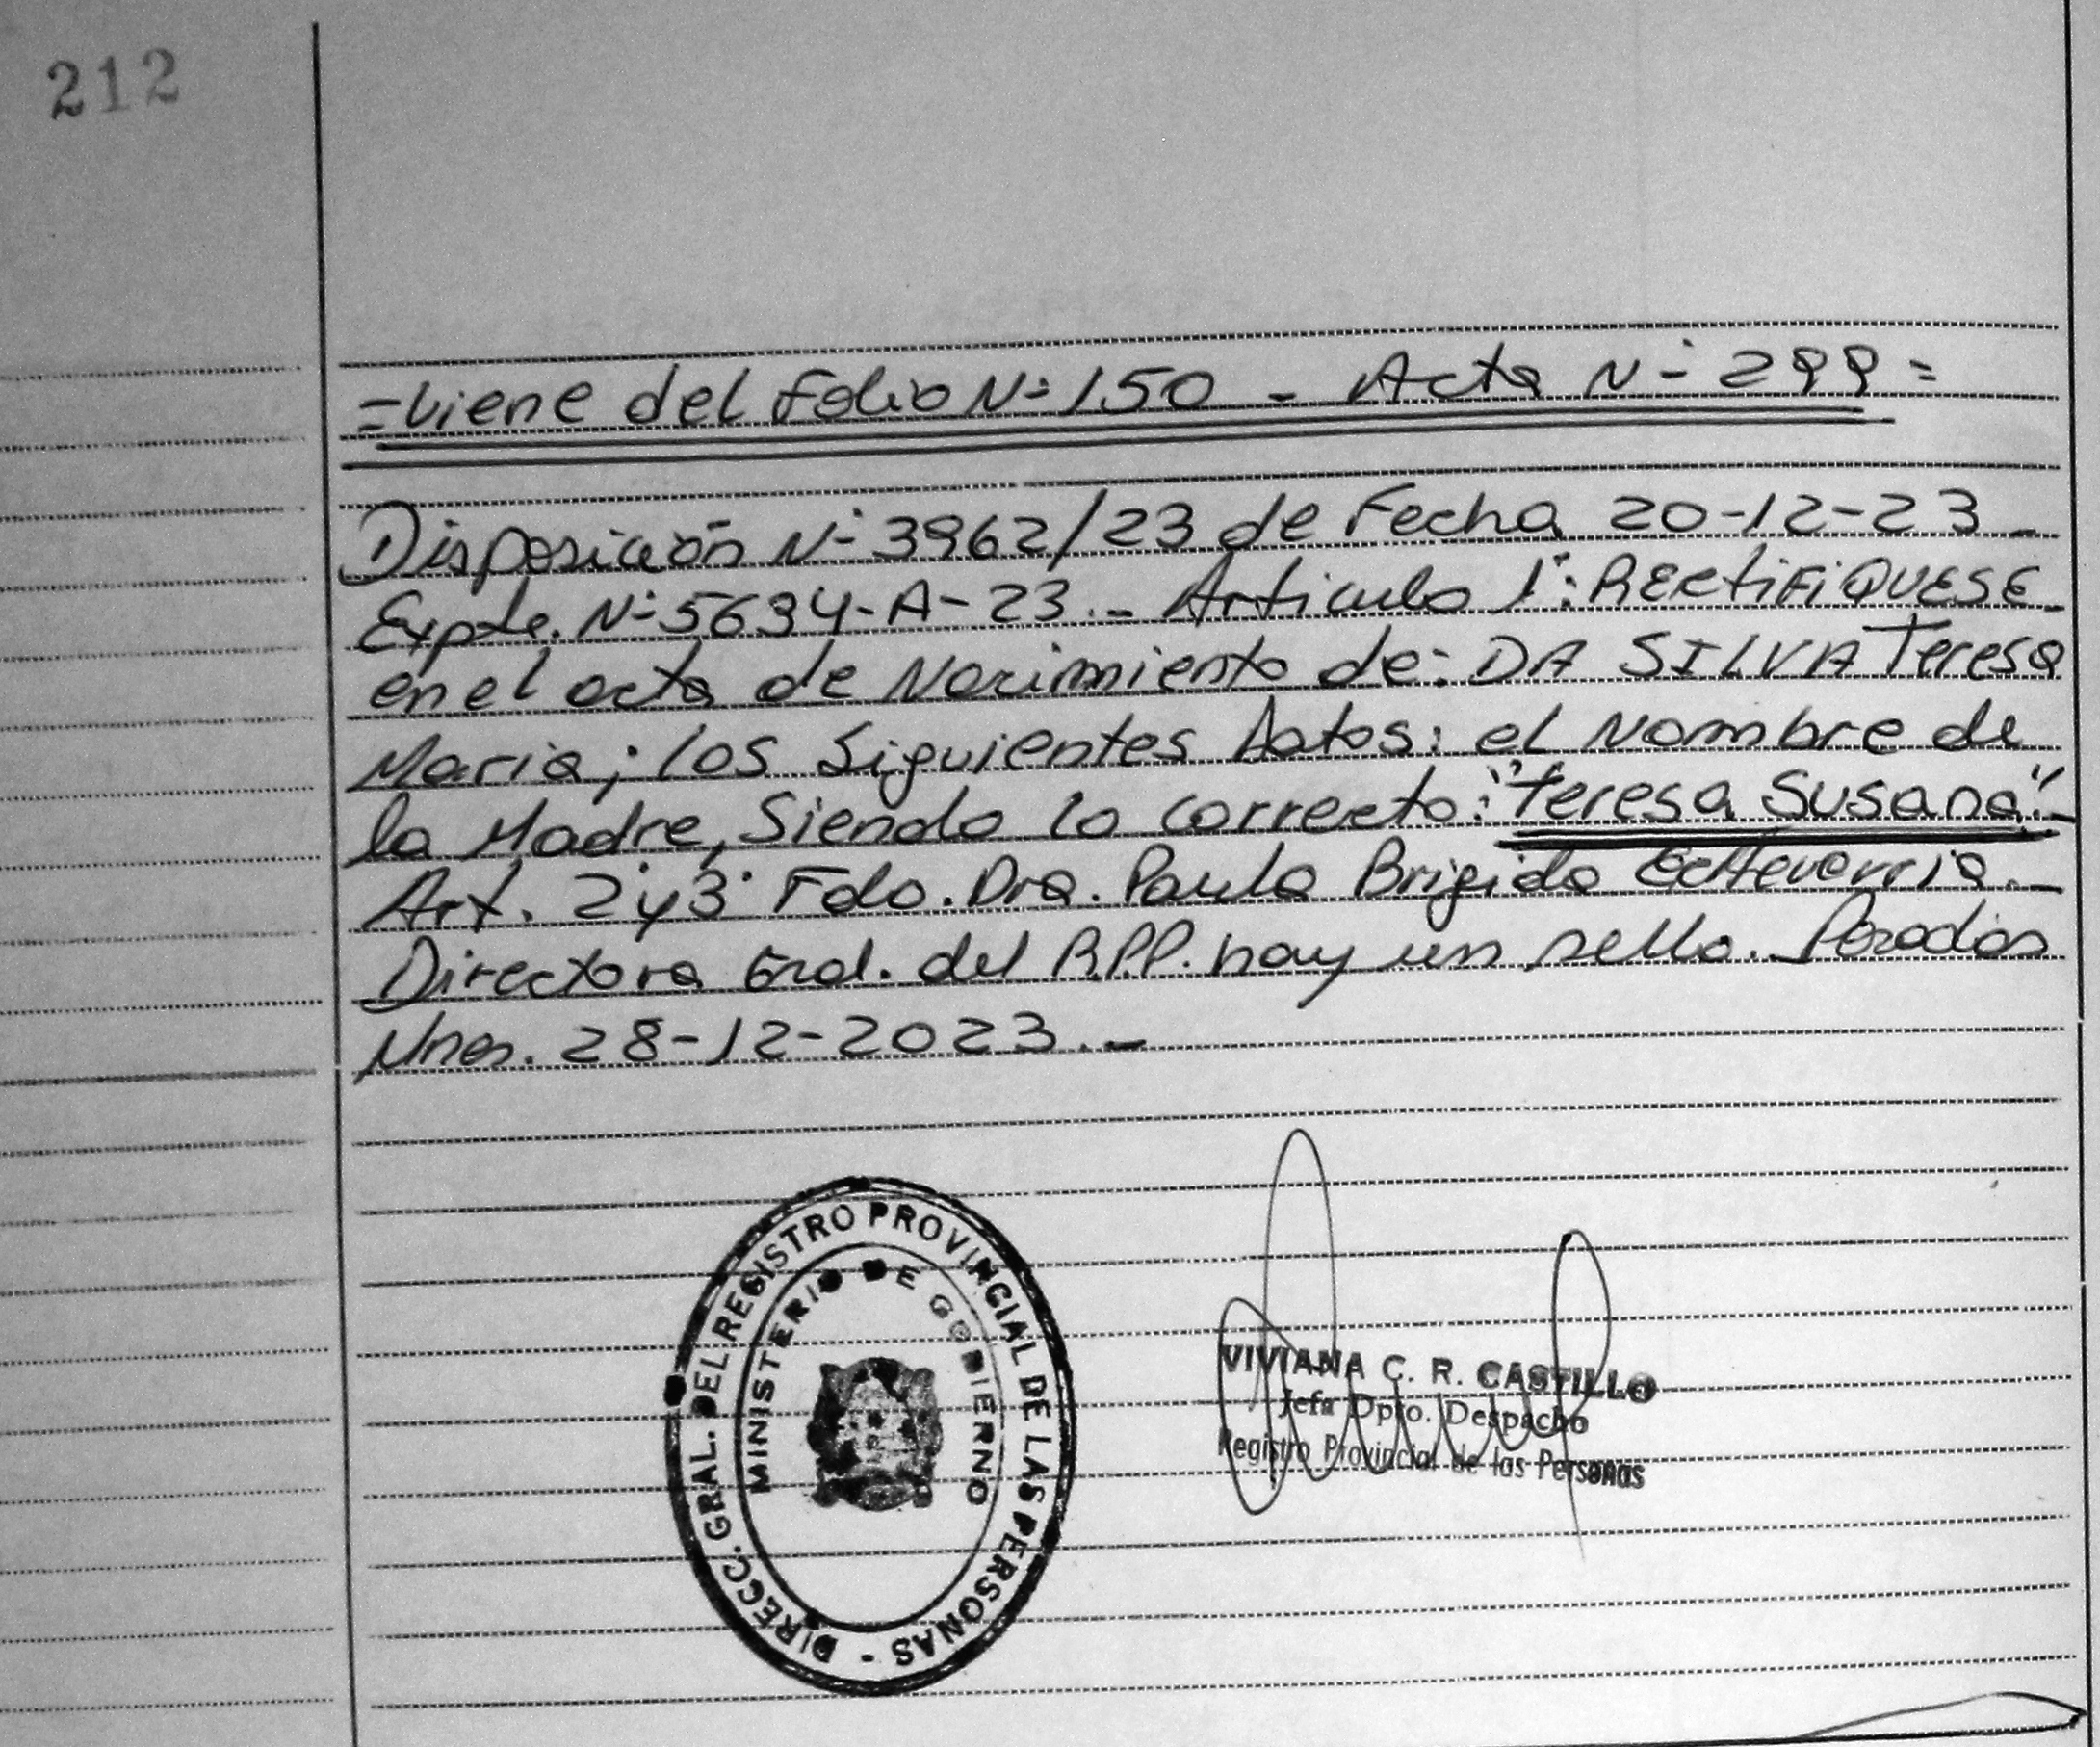 212
=Viene del Folio N° 150 - Acta N° 299=
Disposición N° 3962/23 de Fecha 20-12-23-
Expte. N° 5634-A-23.- Articulo 1°: RECTIFIQUESE
en el acta de Nacimiento de: DA SILVA Teresa
Maria; los Siguientes datos: el Nombre de
la Madre, Siendo lo correcto: "Teresa Susana".-
Art. 2° y 3° Fdo. Dra. Paula Brigida Echevarria.-
Directora Gral. del R.P.P. hay un sello. Posadas
Mnes. 28-12-2023.-
DIRECC. GRAL. DEL REGISTRO PROVINCIAL DE LAS PERSONAS -
MINISTERIO DE GOBIERNO
VIVIANA C. R. CASTILLO
Jefa Dpto. Despacho
Registro Provincial de las Personas